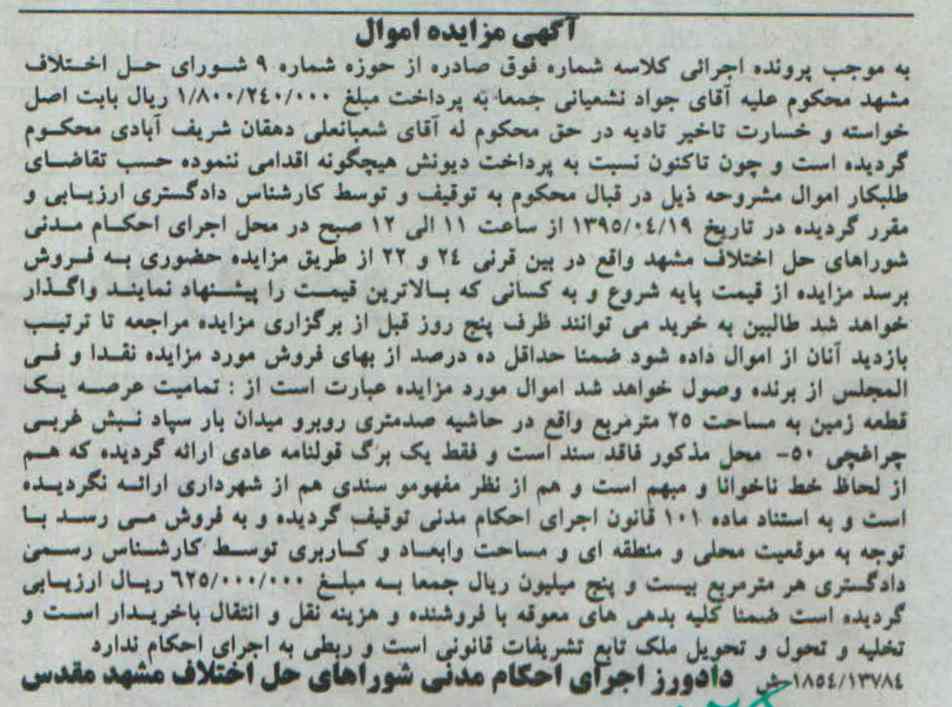 آگهی مزایده اموال
به موجب پرونده اجرائی کلاسه شماره فوق صادره از حوزه شماره ۹ شورای حل اختلاف
مشهد محکوم علیه آقای جواد نشعبانی جمعا به پرداخت مبلغ ۱/۸۰۰/۲٤۰/۰۰۰ ریال بابت اصل
خواسته و خسارت تاخیر تادیه در حق محکوم له آقای شعبانعلی دهقان شریف آبادی محکوم
گردیده است و چون تاکنون نسبت به پرداخت دیونش هیچگونه اقدامی ننموده حسب تقاضای
طلبکار اموال مشروحه ذیل در قبال محکوم به توقیف و توسط کارشناس دادگستری ارزیابی و
مقرر گردیده در تاریخ ۱۳۹٥/۰٤/۱۹ از ساعت ۱۱ الی ۱۲ صبح در محل اجرای احکام مدنی
شوراهای حل اختلاف مشهد واقع در بین قرنی ۲٤ و ۲۲ از طریق مزایده حضوری به فروش
برسد مزایده از قیمت پایه شروع و به کسانی که بالاترین قیمت را پیشنهاد نمایند واگذار
خواهد شد طالبین به خرید می توانند ظرف پنج روز قبل از برگزاری مزایده مراجعه تا ترتیب
بازدید آنان از اموال داده شود ضمنا حداقل ده درصد از بهای فروش مورد مزایده نقدا و فی
المجلس از برنده وصول خواهد شد اموال مورد مزایده عبارت است از : تمامیت عرصه یک
قطعه زمین به مساحت ۲٥ مترمربع واقع در حاشیه صدمتری روبرو میدان بار سپاد نبش غربی
چراغچی ٥۰- محل مذکور فاقد سند است و فقط یک برگ قولنامه عادی ارائه گردیده که هم
از لحاظ خط ناخوانا و مبهم است و هم از نظر مفهومو سندی هم از شهرداری ارائه نگردیده
است و به استناد ماده ۱۰۱ قانون اجرای احکام مدنی توقیف گردیده و به فروش می رسد با
توجه به موقعیت محلی و منطقه ای و مساحت وابعاد و کاربری توسط کارشناس رسمی
دادگستری هر مترمربع بیست و پنج میلیون ریال جمعا به مبلغ ٦۲٥/۰۰۰/۰۰۰ ریال ارزیابی
گردیده است ضمنا کلیه بدهی های معوقه با فروشنده و هزینه نقل و انتقال باخریدار است و
تخلیه و تحول و تحویل ملک تابع تشریفات قانونی است و ربطی به اجرای احکام ندارد
۱۸٥٤/۱۳۷۸٤ ش دادورز اجرای احکام مدنی شوراهای حل اختلاف مشهد مقدس